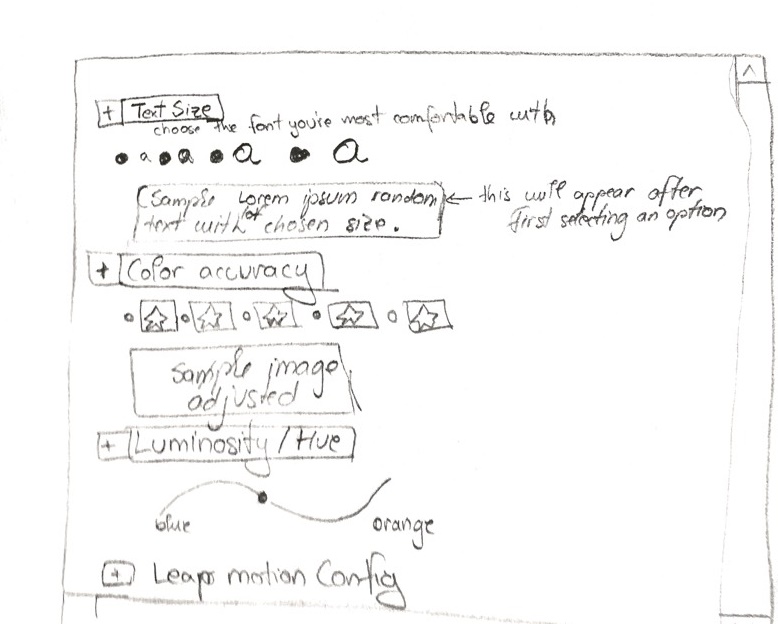 + Text Size
choose the font you're most comfortable with
a a a a
Sample Lorem ipsum random
text with of chosen size.
← this will appear after
first selecting an option
+ Color accuracy
Sample image
adjusted
+ Luminosity / Hue
blue
orange
+ Leap motion Config